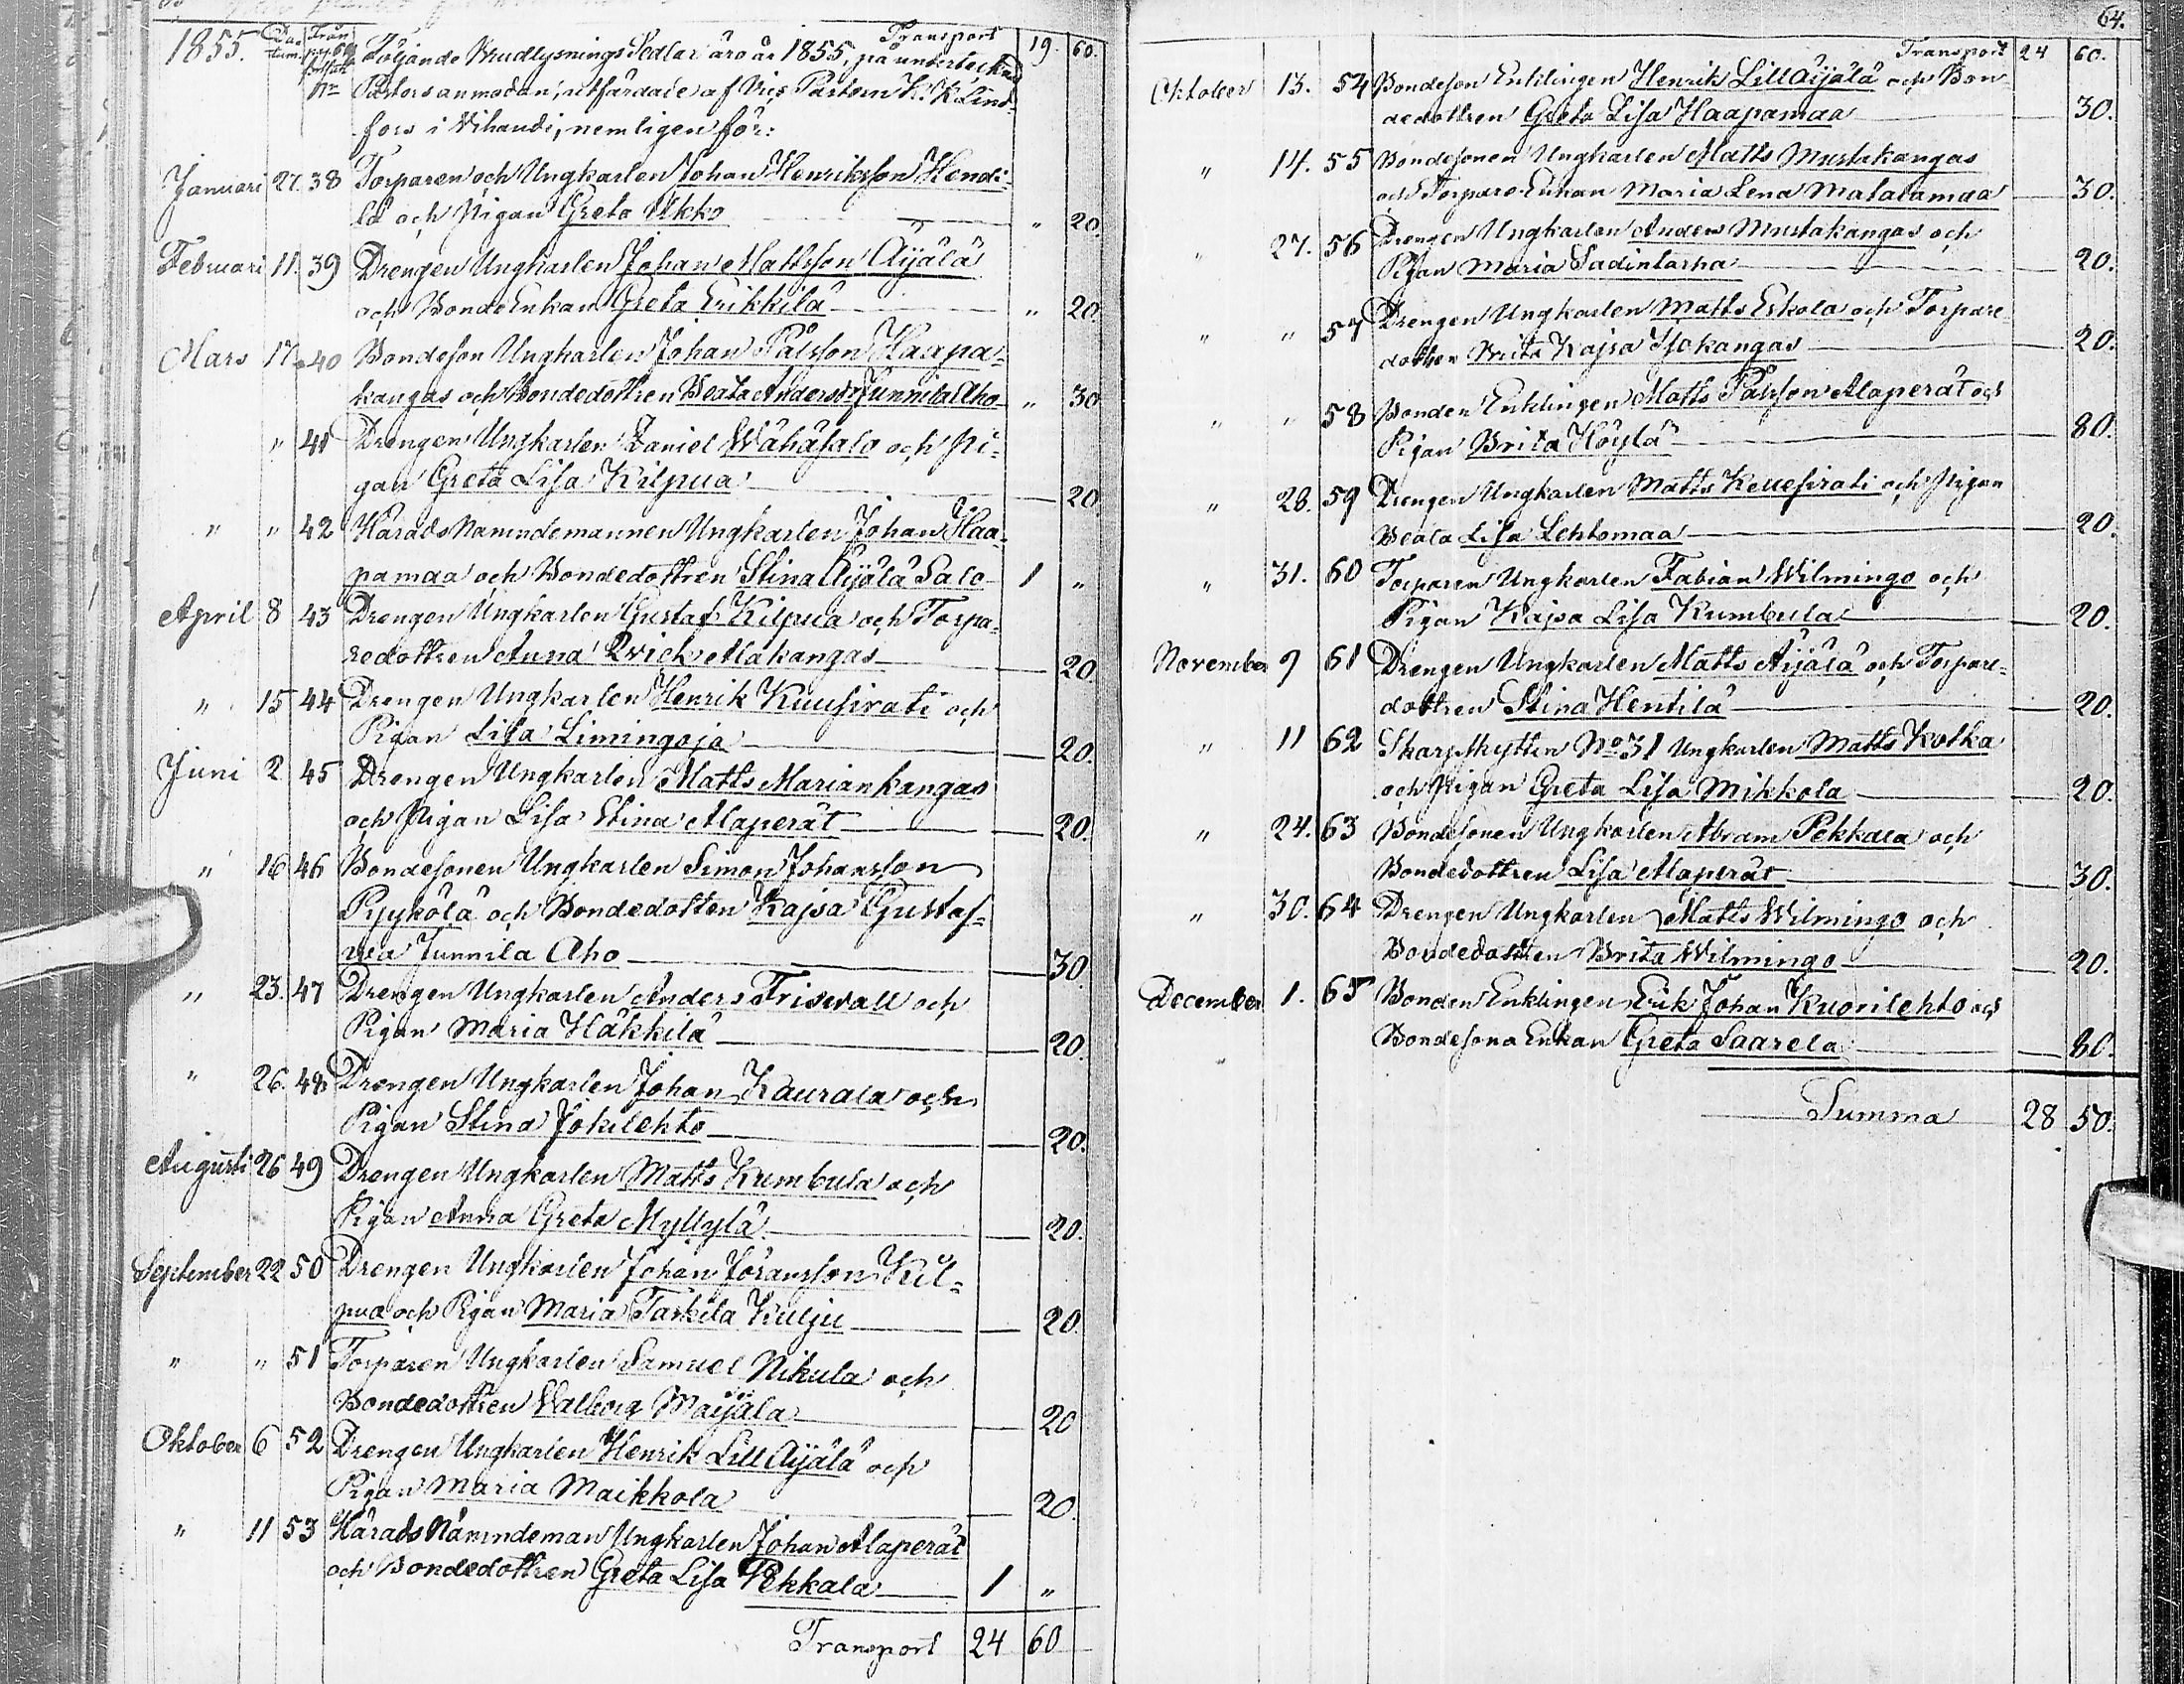 1855. Datum. Från pag. 60 fortsatt No Transport 19. 60.
Följande Brudlysnings Sedlar äro år 1855, på undertecknad
Pastors anmodan, utfärdade af Vice Pastorn K. K. Lind-
fors i Vihandi, nemligen för:
Januari 27. 38 Torparen och Ungkarlen Johan Henriksson Hendi-
lä och Pigan Greta Ukko " 20.
Februari 11. 39 Drengen Ungkarlen Johan Mattsson Äijälä
och BondeEnkan Greta Erikkilä " 20
Mars 17. 40 Bondeson Ungkarlen Johan Pålsson Haapa-
kangas och Bondedottren Beata Andersdr Junnila Aho " 30
" 41 Drengen Ungkarlen Daniel Wähäsalo och Pi-
gan Greta Lisa Kilpua 20
" " 42 Härads Nämndemannen Ungkarlen Johan Haa-
pamaa och Bondedottren Stina Äijälä Salo 1 "
April 8 43 Drengen Ungkarlen Gustaf Kilpua och Torpa-
redottren Anna Qvick Alakangas 20
" 15 44 Drengen Ungkarlen Henrik Kuusirati och
Pigan Lisa Limingoja 20.
Juni 2 45 Drengen Ungkarlen Matts Mariankangas
och Pigan Lisa Stina Alaperät 20.
" 16 46 Bondesonen Ungkarlen Simon Johansson
Pyykölä och Bondedotten Kajsa Gustaf-
va Junnila Aho 30.
" 23. 47 Drengen Ungkarlen Anders Friswall och
Pigan Maria Häkkilä 20.
" 26. 48 Drengen Ungkarlen Johan Kaurala och
Pigan Stina Jokilehto 20.
Augusti 26 49 Drengen Ungkarlen Matts Krumbula och
Pigan Anna Greta Myllylä 20.
September 22 50 Drengen Ungkarlen Johan Göransson Kil-
pua och Pigan Maria Tarkila Kulju 20.
" " 51 Torparen Ungkarlen Samuel Nikula och
Bondedottren Walborg Maijala 20
Oktober 6 52 Drengen Ungkarlen Henrik Lill Äijälä och
Pigan Maria Maikkola 20.
" 11 53 Härads Nämndeman Ungkarlen Johan Alaperät
och Bondedottren Greta Lisa Pekkala 1 "
Transport 24 60
64.
Transport 24 60.
Oktober 13. 54 Bondeson Enklingen Henrik Lill Äijälä och Bon-
dedottren Greta Lisa Haapamaa 30.
" 14. 55 Bondesonen Ungkarlen Matts Mustakangas
och Torpare Enkan Maria Lena Matalamaa 30.
" 27. 56 Drengen Ungkarlen Anders Mustakangas och
Pigan Maria Sadintarha 20.
" " 57 Drengen Ungkarlen Matts Eskola och Torpare-
dottren Brita Kajsa Isokangas 20.
" " 58 Bonden Enklingen Matts Pålsson Alaperät och
Pigan Brita Höylä 80.
" 28. 59 Drengen Ungkarlen Matts Kuusirati och Pigan
Beata Lisa Lehtomaa 20.
" 31. 60 Torparen Ungkarlen Fabian Wilmingo och
Pigan Kajsa Lisa Kumbula 20.
November 9 61 Drengen Ungkarlen Matts Äijälä och Torpare-
dottren Stina Hentilä 20.
" 11 62 Skarpskytten No 31 Ungkarlen Matts Kotka
och Pigan Greta Lisa Mikkola 20.
" 24. 63 Bondesonen Ungkarlen Abram Pekkala och
Bondedottren Lisa Alaperät 30.
" 30. 64 Drengen Ungkarlen Matts Wilmingo och
Bondedottren Brita Wilmingo 20.
December 1. 65 Bonden Enklingen Erik Johan Kuorilehto och
Bondesona Enkan Greta Saarela 80.
Summa 28 50.